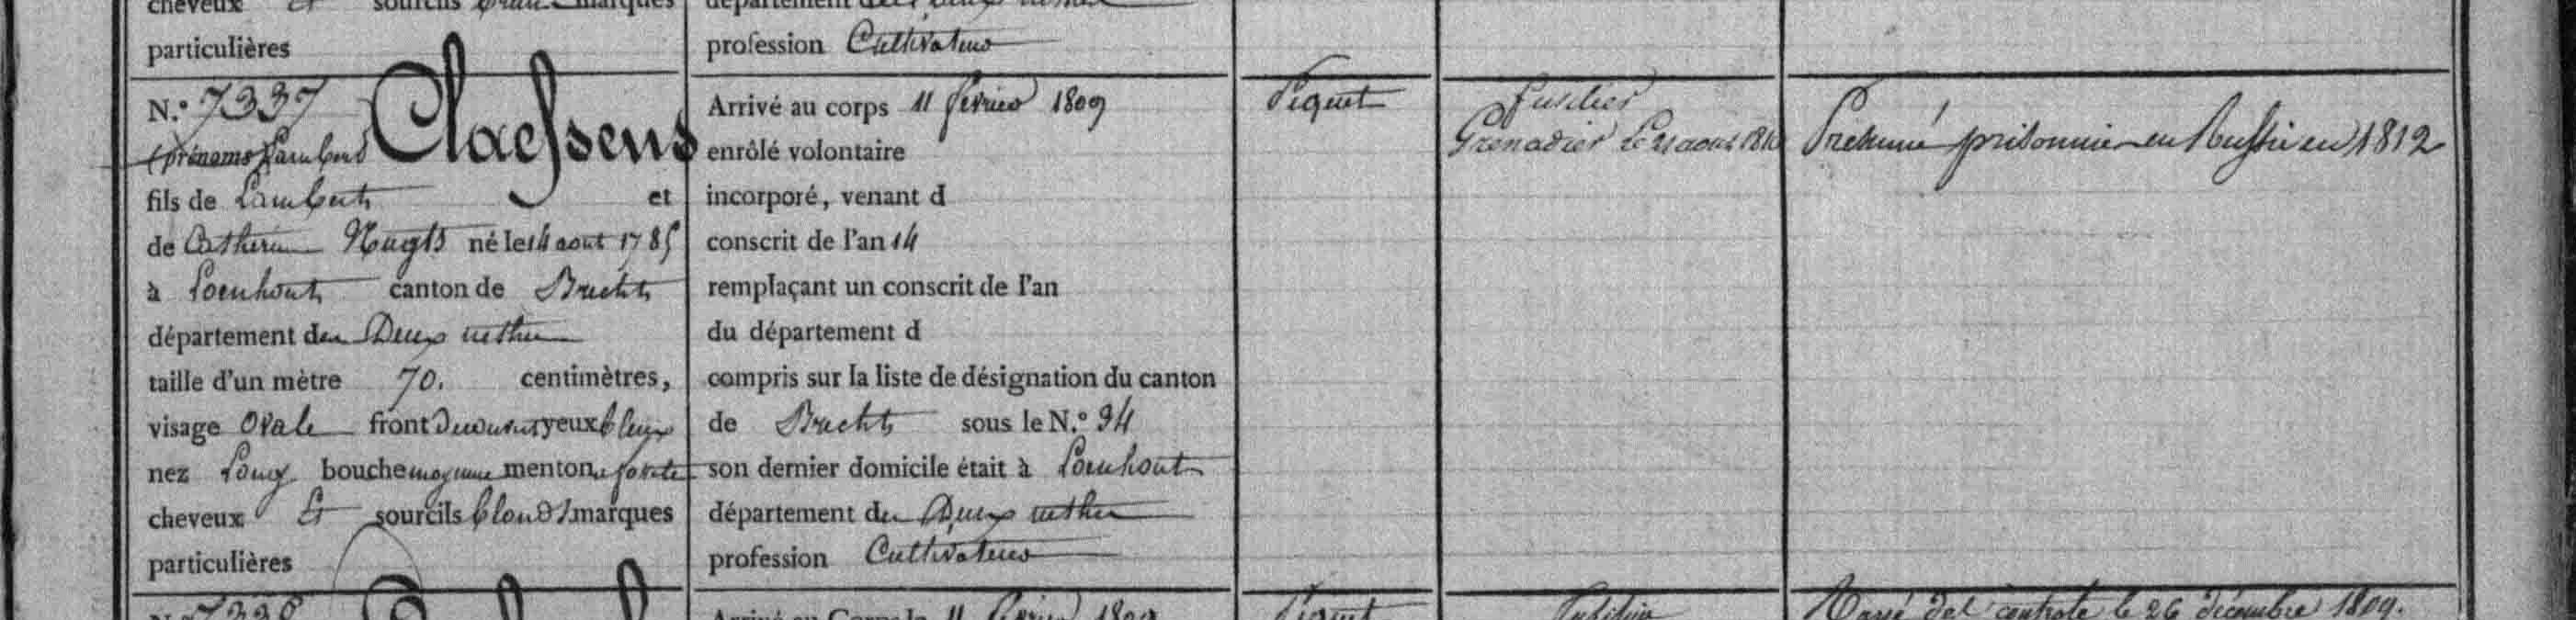 cheveux et sourcils brun marques
particulières
N.º 7337 Claessens
(prénoms) Lambert
fils de Lambert et
de Catherine né le 14 aout 1785
à Loenhout canton de Brecht
département des Deux nethes
taille d'un mètre 70. centimètres,
visage Ovale front Decouvert yeux bleux
nez Long bouche moyenne menton
cheveux Et sourcils blonds marques
particulières
N.º 7338
département des Deux nethes
profession Cultivateur
Arrivé au corps 11 fevrier 1809
enrôlé volontaire
incorporé, venant d
conscrit de l'an 14
remplaçant un conscrit de l'an
du département d
compris sur la liste de désignation du canton
de Brecht sous le N.º 94
son dernier domicile était à Loenhout
département des Deux nethes
profession Cultivateur
Arrivé au Corps le 11 fevrier 1809
Piquet
Piquet
Fusilier
Grenadier Le 21 aout 1810
Fusilier
Présumé prisonnier en Russie en 1812
Rayé del controle le 26 décembre 1809.